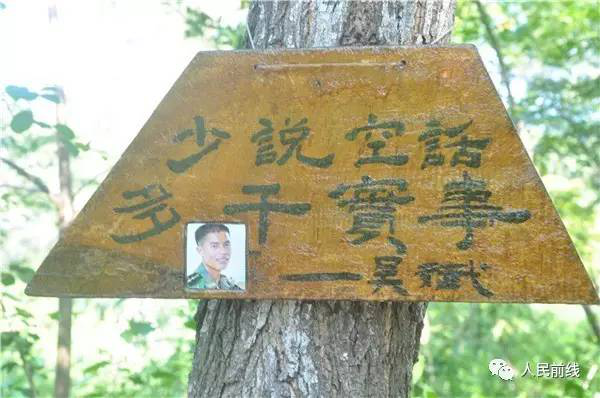 少説空話
多干實事
—吴斌
人民前线